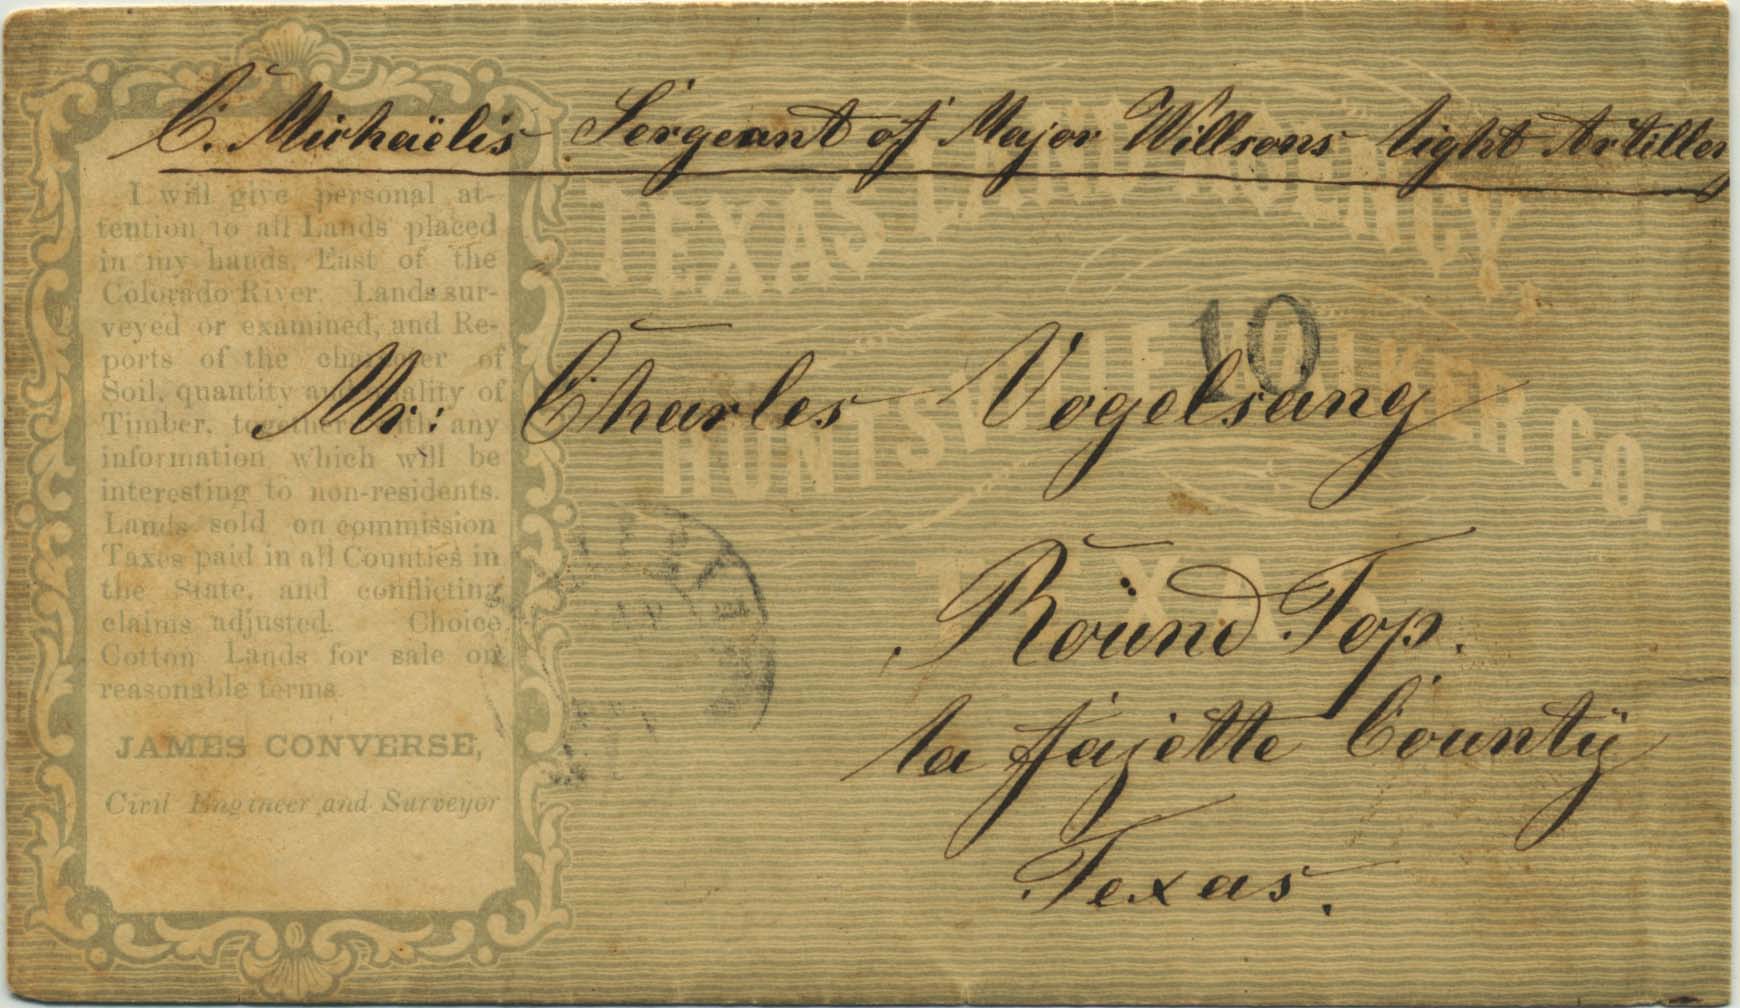 C. Michaëlis Sergeant of Major Willsons light Artillery
TEXAS LAND AGENCY,
HUNTSVILLE WALKER CO.
TEXAS
I will give personal at-
tention to all Lands placed
in my hands, East of the
Colorado River. Lands sur-
veyed or examined, and Re-
ports of the character of
Soil, quantity and quality of
Timber, together with any
information which will be
interesting to non-residents.
Lands sold on commission
Taxes paid in all Counties in
the State, and conflicting
claims adjusted. Choice
Cotton Lands for sale on
reasonable terms.
JAMES CONVERSE,
Civil Engineer and Surveyor
10
Mr: Charles Vogelsang
Roünd Top.
la fajette County
Texas.